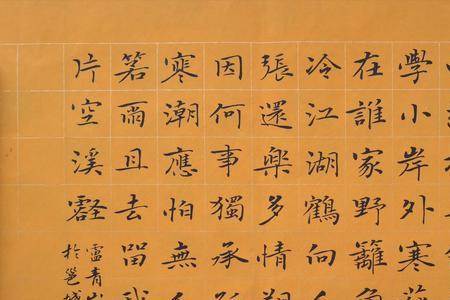 學小岸外寒
在誰家野籬
冷江湖鶴向
張還樂多情
因何事獨承
寒潮應怕無
箬雨且去留我
片空溪
盧青
於邕城